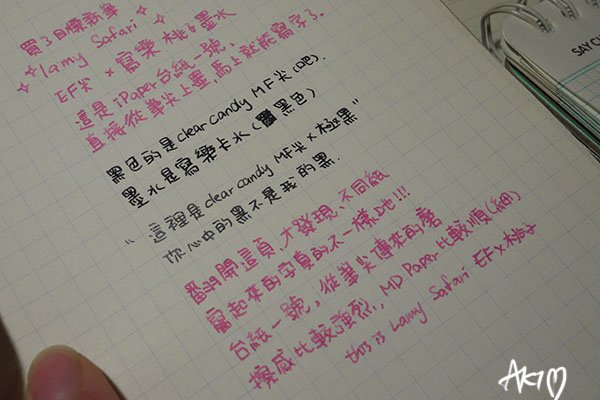 買了目標新筆
☆ lamy Safari ☆
EF尖 × 寫樂 桃子墨水
這是iPaper台紙一號,
直接從筆尖上墨,馬上就能寫字了.
黑色的是clear candy MF尖(吧).
墨水是寫樂卡水(黑色)
"這裡是clear candy MF尖×極黑"
你心中的黑不是我的黑.
翻開這頁,大發現,不同紙
寫起來的字真的不一樣地!!!
台紙一號,從筆尖傳來的磨
擦感比較強烈, MD Paper比較順(細)
this is Lamy Safari EF×桃子
SAY C
AKI♡